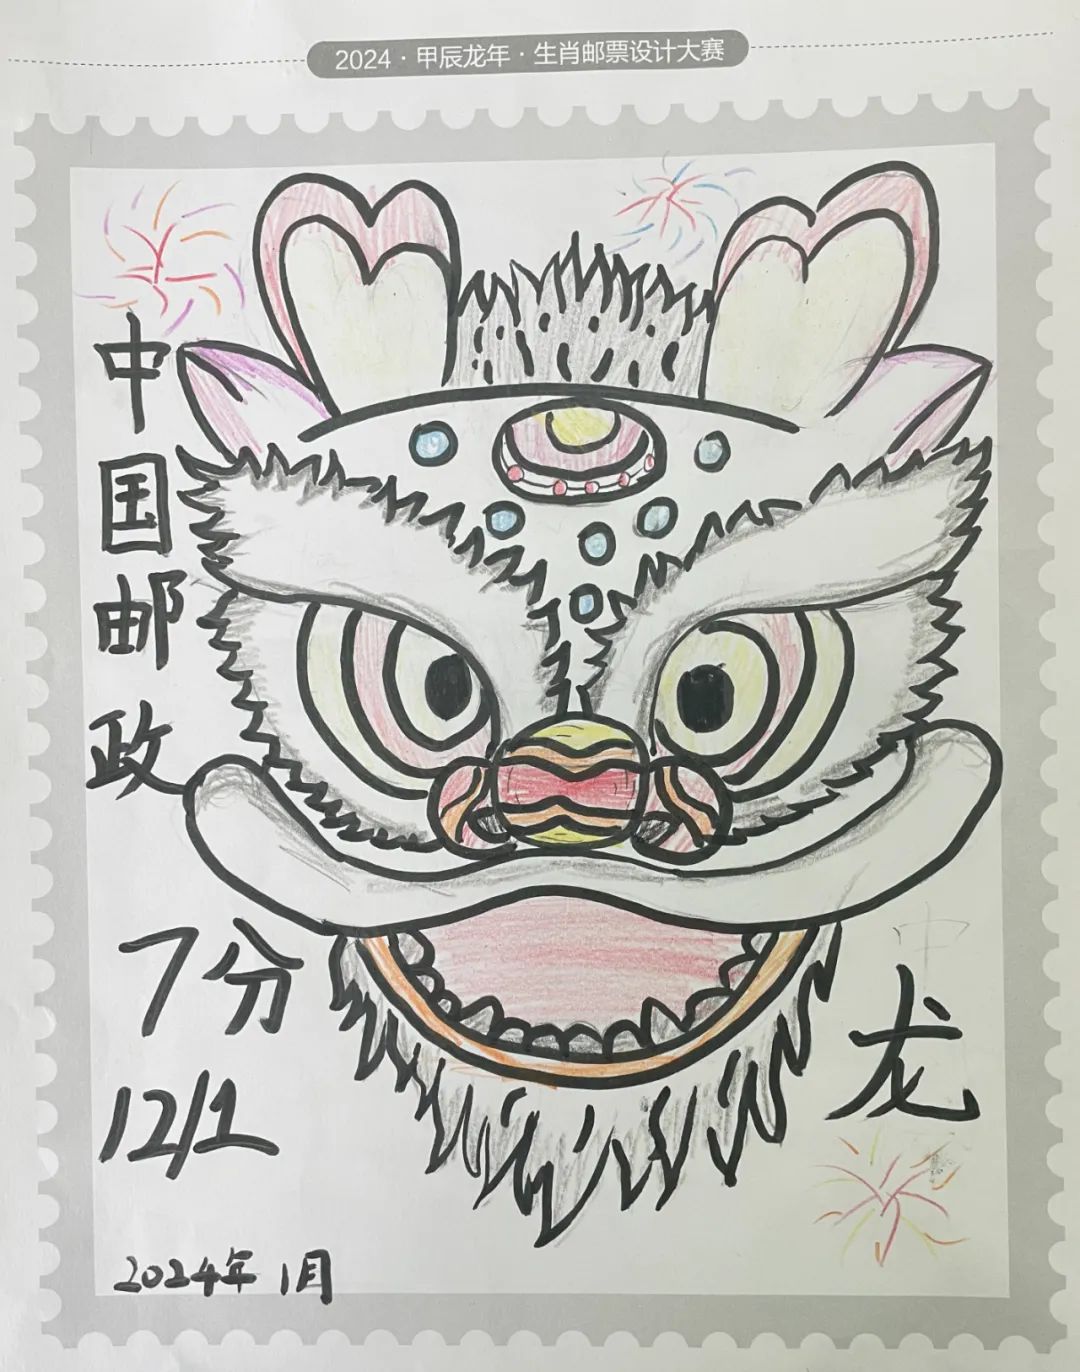 2024·甲辰龙年·生肖邮票设计大赛
中国邮政
7分
12/1
龙
2024年 1月